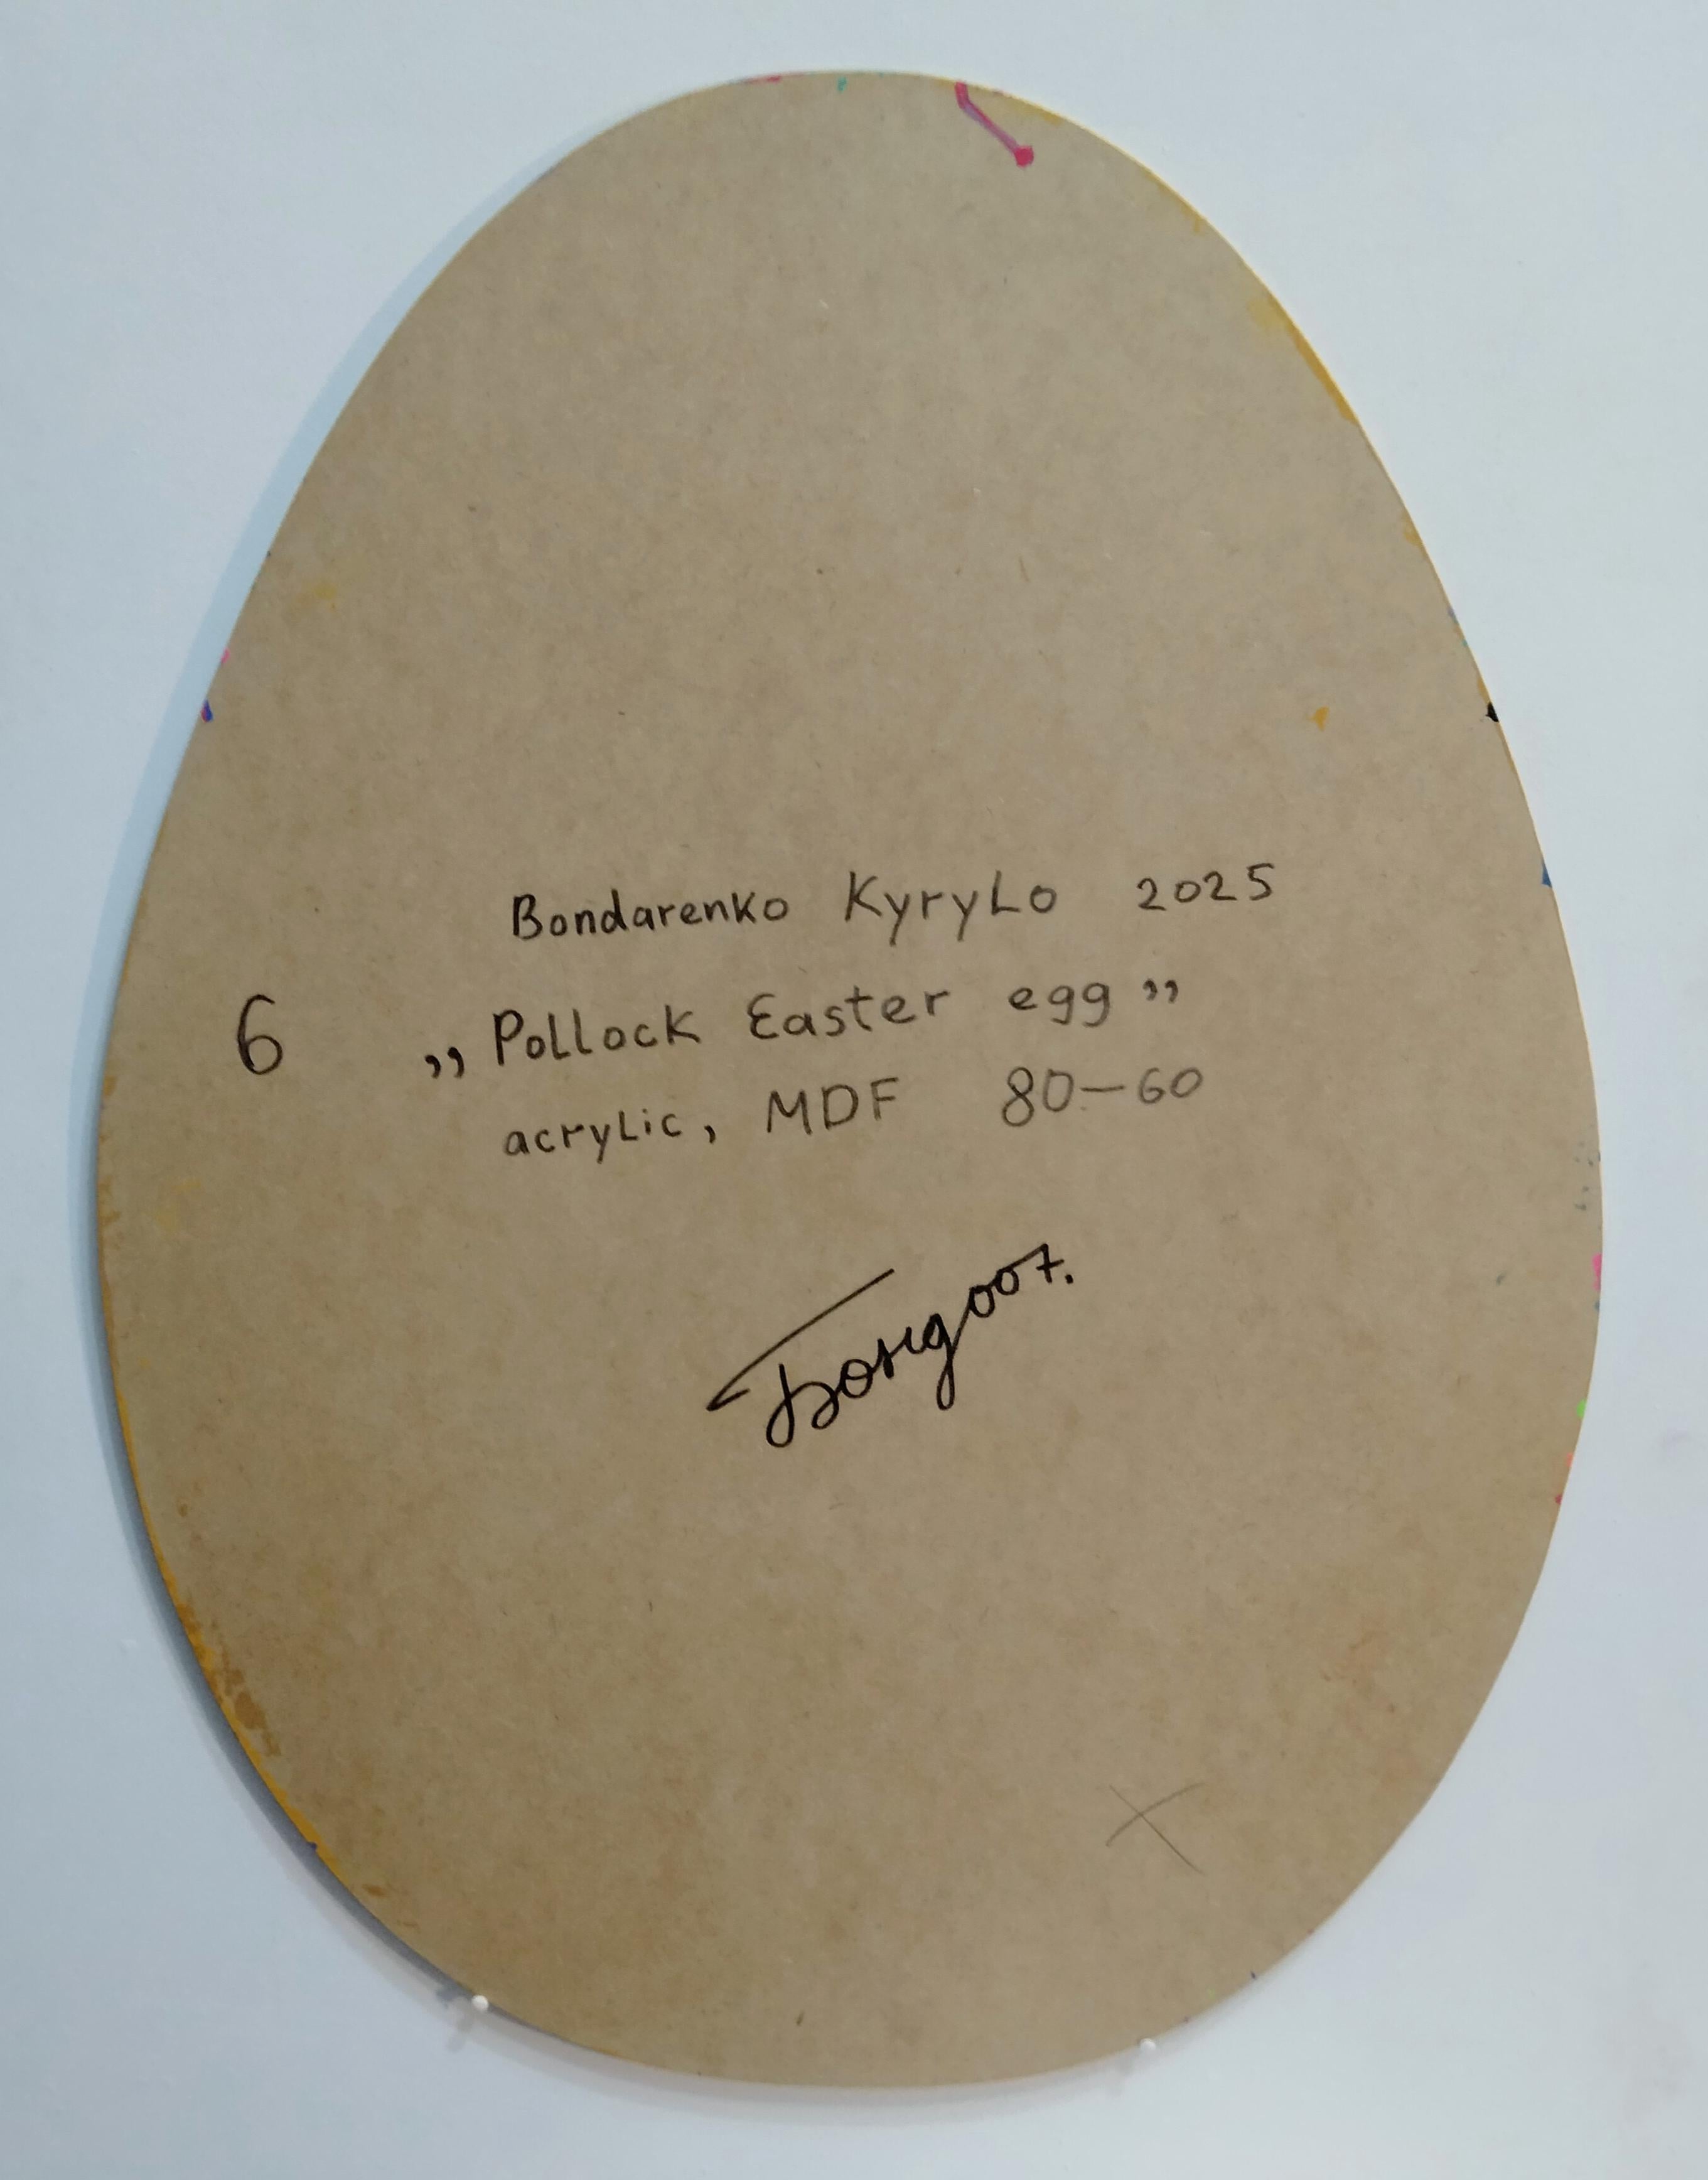 Bondarenko Kyrylo 2025
6 „Pollock Easter egg”
acrylic, MDF 80-60
Бонд007.